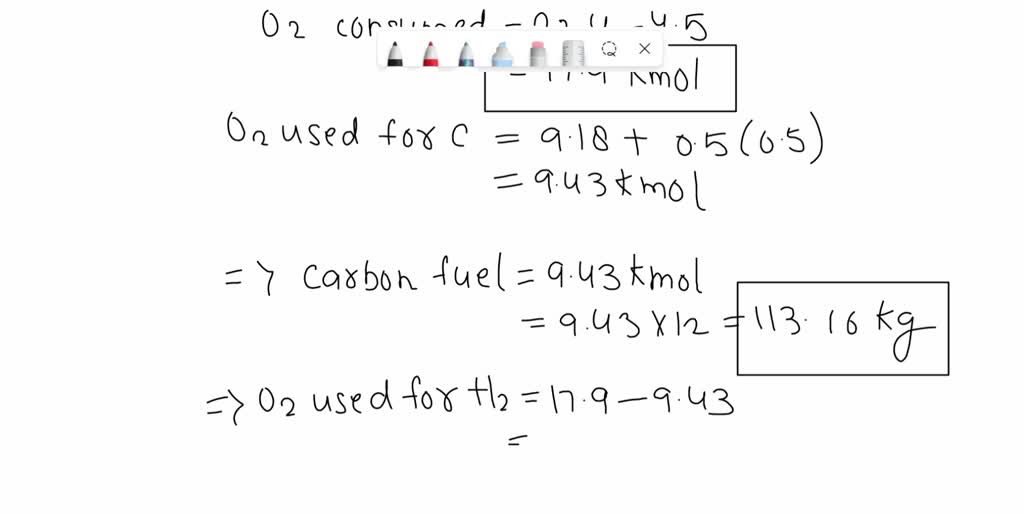 O2 4.5
kmol
O2 used for C = 9.18 + 0.5(0.5)
= 9.43 kmol
=> carbon fuel = 9.43 kmol
= 9.43 x 12 = 113.16 kg
=> O2 used for H2 = 17.9 - 9.43
=